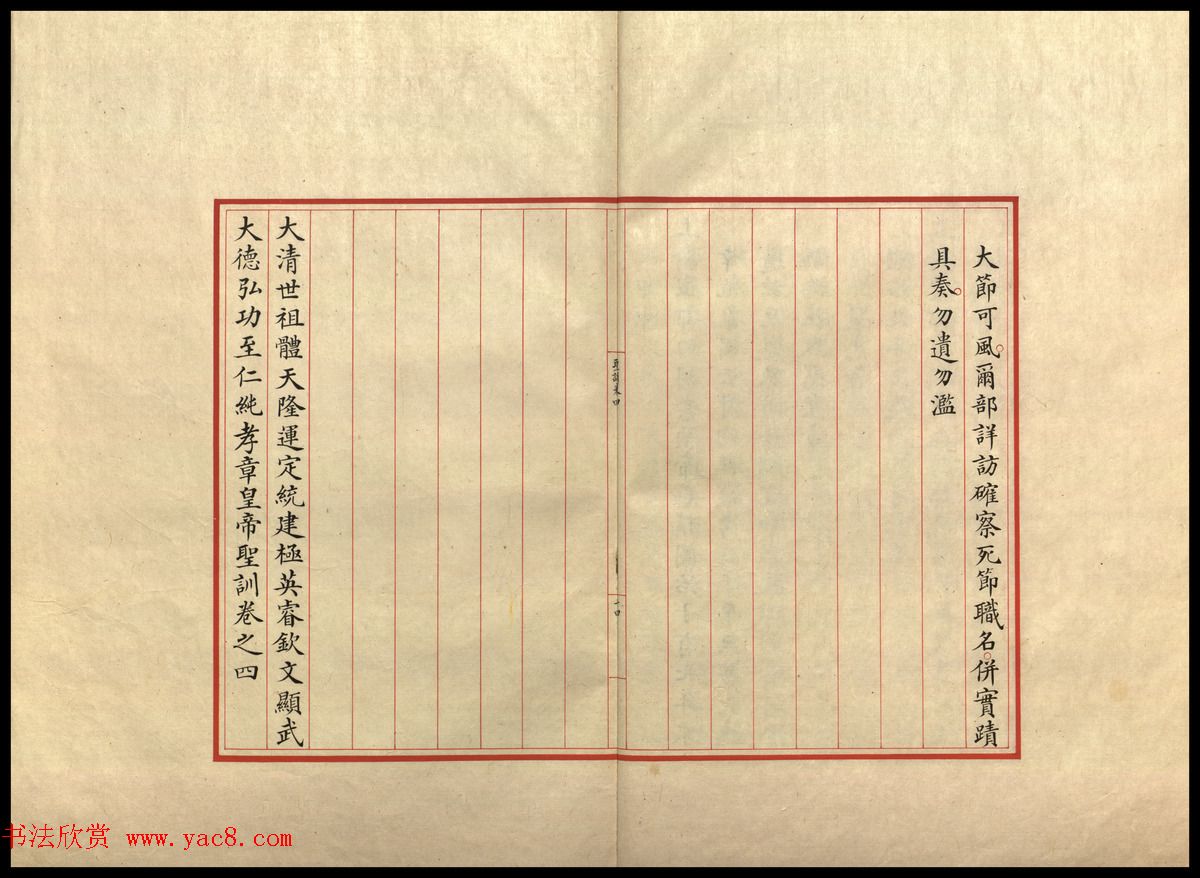 大節可風。爾部詳訪確察死節職名。併實蹟
具奏。勿遺勿濫
聖訓卷四
十四
大清世祖體天隆運定統建極英睿欽文顯武
大德弘功至仁純孝章皇帝聖訓卷之四
书法欣赏 www.yac8.com